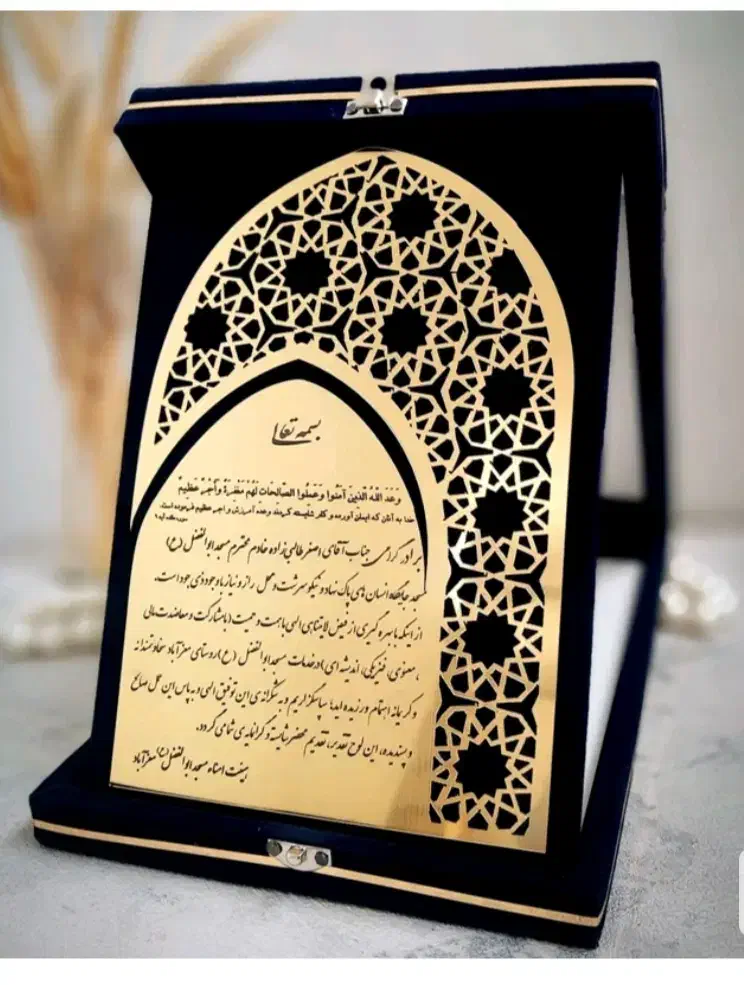 بسمه تعالی
وَعَدَ اللَّهُ الَّذِينَ آمَنُوا وَعَمِلُوا الصَّالِحَاتِ لَهُمْ مَغْفِرَةٌ وَأَجْرٌ عَظِيمٌ
خدا به آنان که ایمان آورده و کار شایسته کردند وعده آمرزش و اجر عظیم فرموده است.
برادر گرامی جناب آقای اصغر طالبی زاده خادم محترم مسجد ابوالفضل (ع)
مسجد جایگاه انسان های پاک نهاد و نیکو سرشت و محل راز و نیاز با وجود ذی جود است.
از اینکه با بهره گیری از فیض لامتناهی الهی با همت و حمیت (با مشارکت و معاضدت مالی
، معنوی، فیزیکی، اندیشه ای) در خدمات مسجد ابوالفضل (ع) روستای معزآباد سخاوتمندانه
و کریمانه اهتمام ورزیده اید؛ سپاسگزاریم و به شکرانه ی این توفیق الهی و به پاس این عمل صالح
و پسندیده، این لوح تقدیر، تقدیم محضر شایسته و گرانمایه ی شما می گردد.
هیئت امناء مسجد ابوالفضل (ع) معزآباد